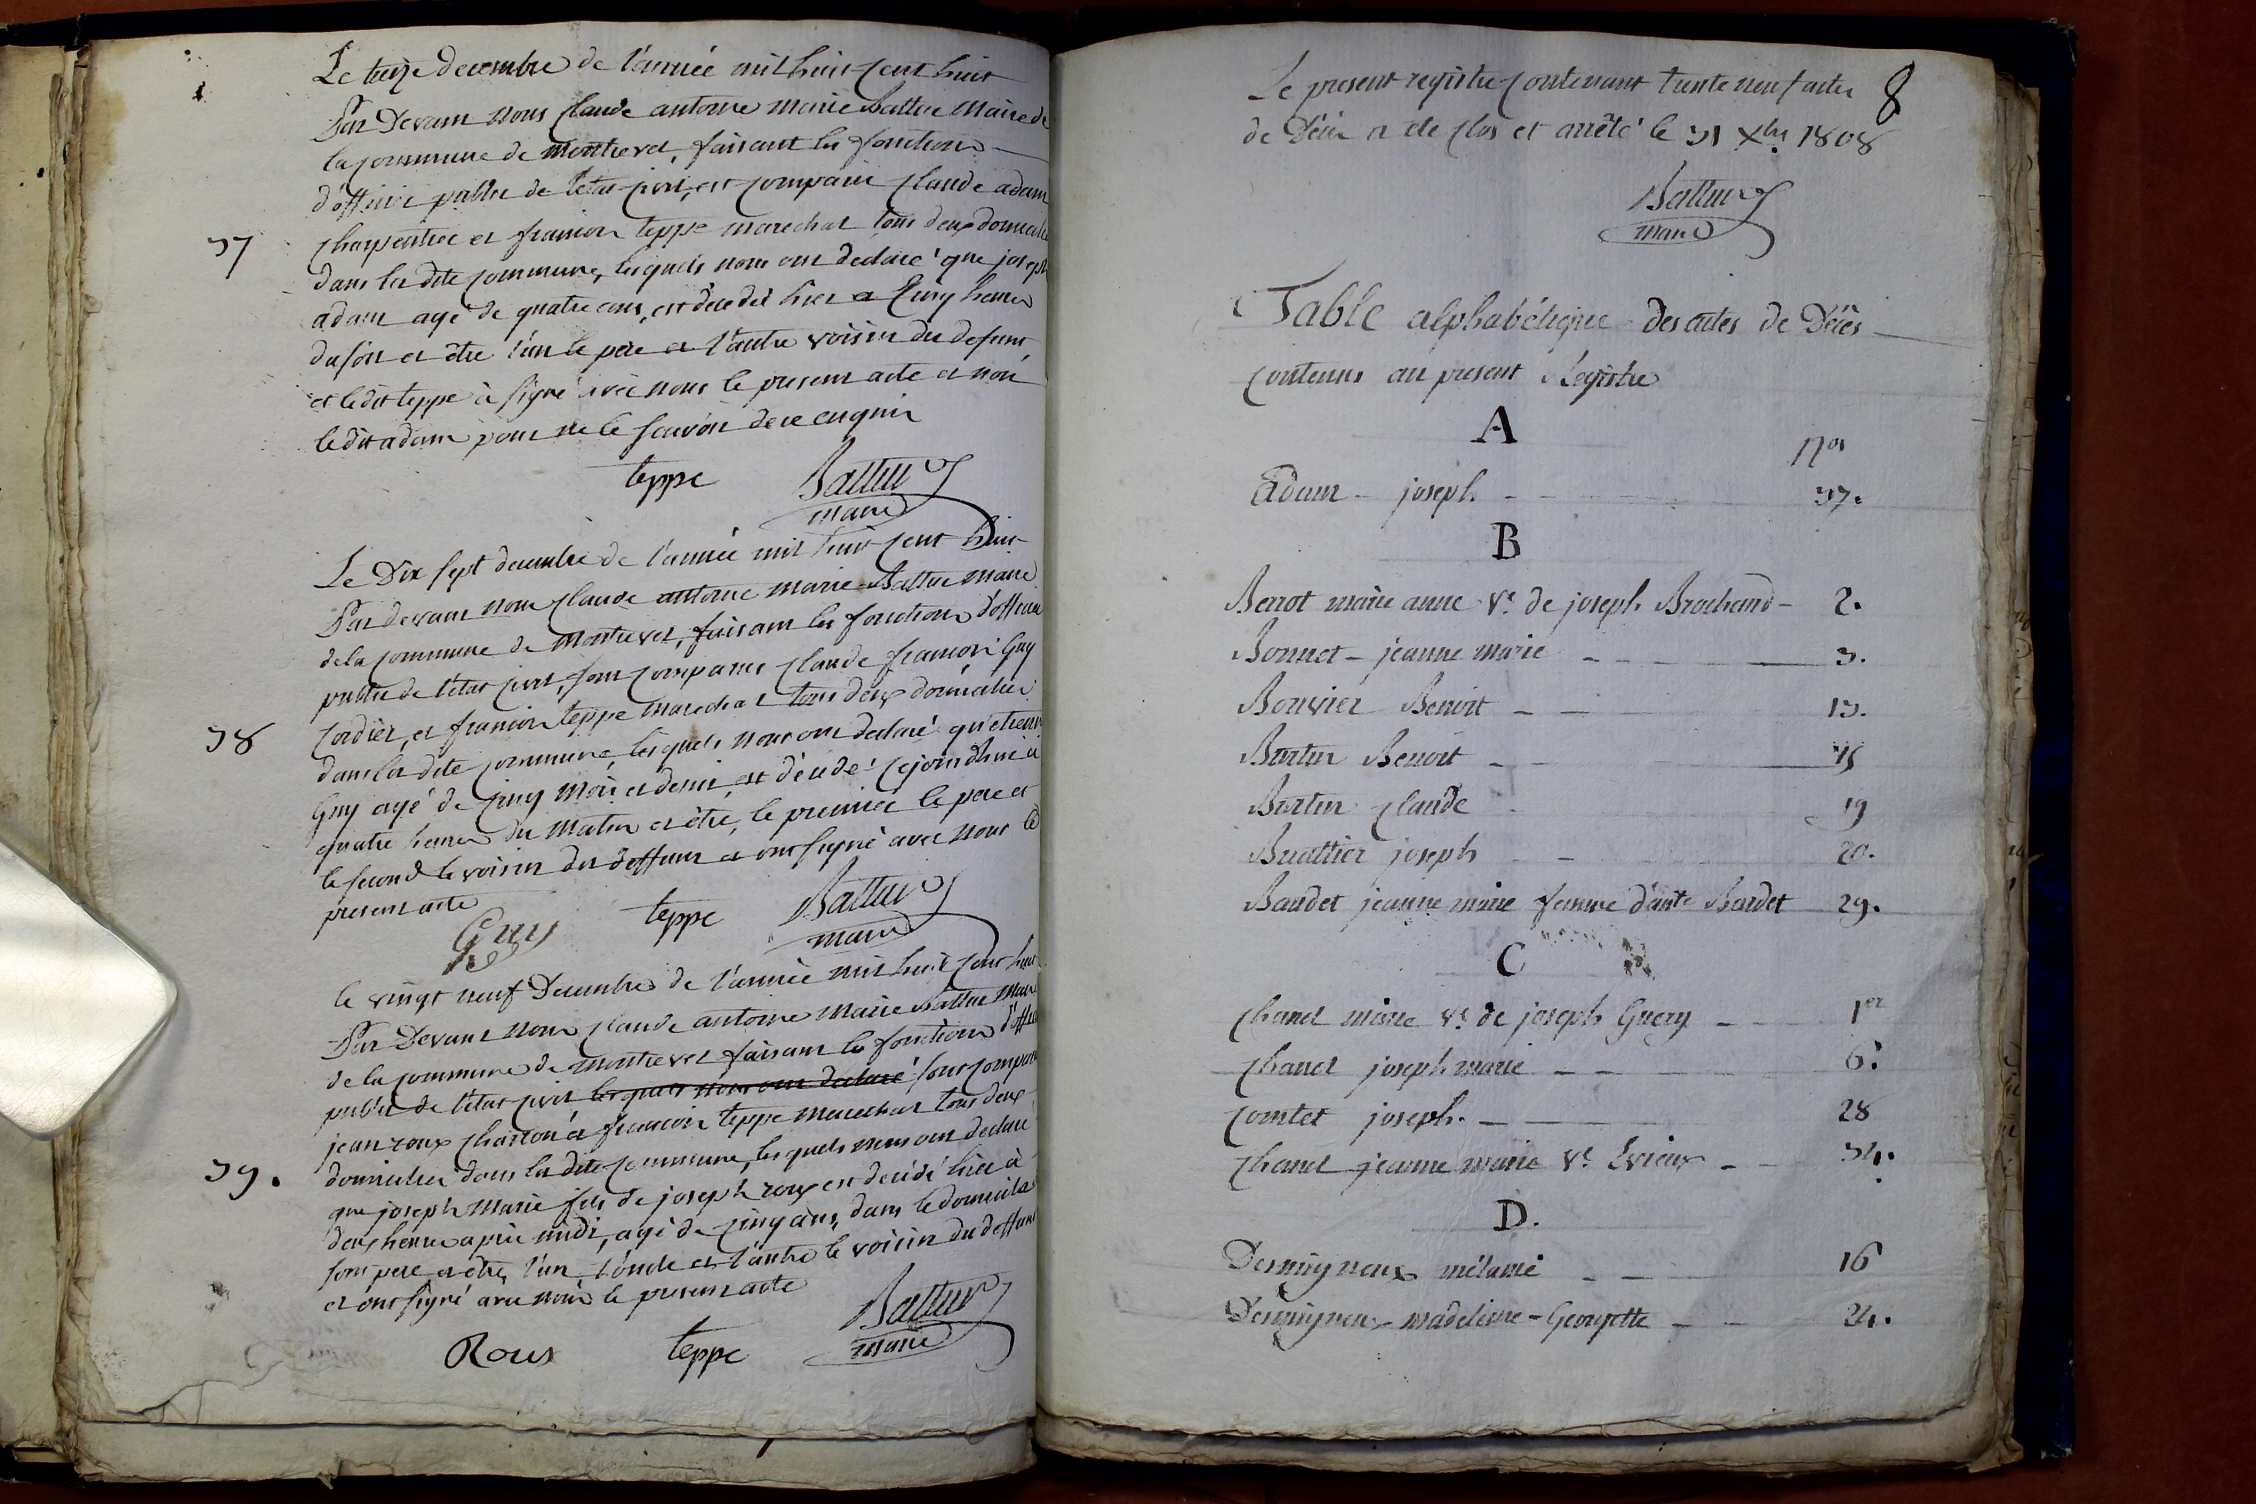 Le treize decembre de l'année mil huit cent huit
Par Devant nous Claude antoine marie Battue Maire de
la commune de Montrevel, faisant les fonctions
d'officier public de l'état civil, est comparu Claude adam
37
charpentier et francois teppe marechal tous deux domicilié
dans la dite commune, lesquels nous ont declaré que joseph
adam agé de quatre ans, est décédé hier a Cinq heures
du soir et être l'un le pere et l'autre voisin du defunt,
et ledit teppe à signé avec nous le present acte et non
ledit adam pour ne le scavoir de ce enquis
teppe Battue
maire
Le Dix sept decembre de l'année mil huit cent huit
Par devant nous Claude antoine marie Battue maire
de la commune de Montrevel, faisant les fonctions d'officier
public de l'état civil, sont comparus Claude francois Guy
38
Cordier, et francois teppe marechal tous deux domiciliés
dans la dite commune, lesquels nous ont declaré qu'etienne
Guy agé de cinq mois et demi est décédé cejourdhui à
quatre heures du matin et être, le premier le pere et
le second le voisin du deffunt et ont signé avec nous le
present acte
Guy teppe Battue
maire
le vingt neuf Decembre de l'année mil huit cent huit
Par Devant nous Claude antoine Marie Battue Maire
de la commune de Montrevel faisant les fonctions d'officier
public de l'état civil lesquels nous ont declaré sont comparu
jean roux charron et francois teppe marechal tous deux
39.
domiciliés dans la dite commune, lesquels nous ont declaré
que joseph Marie fils de joseph roux est decédé hier à
deux heures aprés midi, agé de cinq ans, dans le domicile
son pere et être, l'un l'oncle et l'autre le voisin du deffunt
et ont signé avec nous le present acte
Roux teppe Battue
maire
Le present registre contenant trente neuf actes
8
de Décès a été clos et arrêté le 31 Xbre 1808
Battue
maire
Table alphabétique des actes de Décès
contenus au present Régistre
A
Nos
Adam - joseph - - 37.
B
Berrot marie anne Ve. de joseph Brochand - 2.
Bonnet - jeanne marie - - 3.
Bouvier Benoit - - 13.
Burtin Benoit - - 15
Burtin Claude 19
Buattier joseph - - 20.
Baudet jeanne marie femme d'ante Baudet 29.
C
Chanel marie Ve. de joseph Guery - 1er
Chanel joseph marie - - 6.
Comtet joseph. - - 28
Chanel jeanne marie Ve. Evieux - 34.
D.
Desvigneux mélanie - - 16
Desvigneux madeleine - Georgette - - 24.